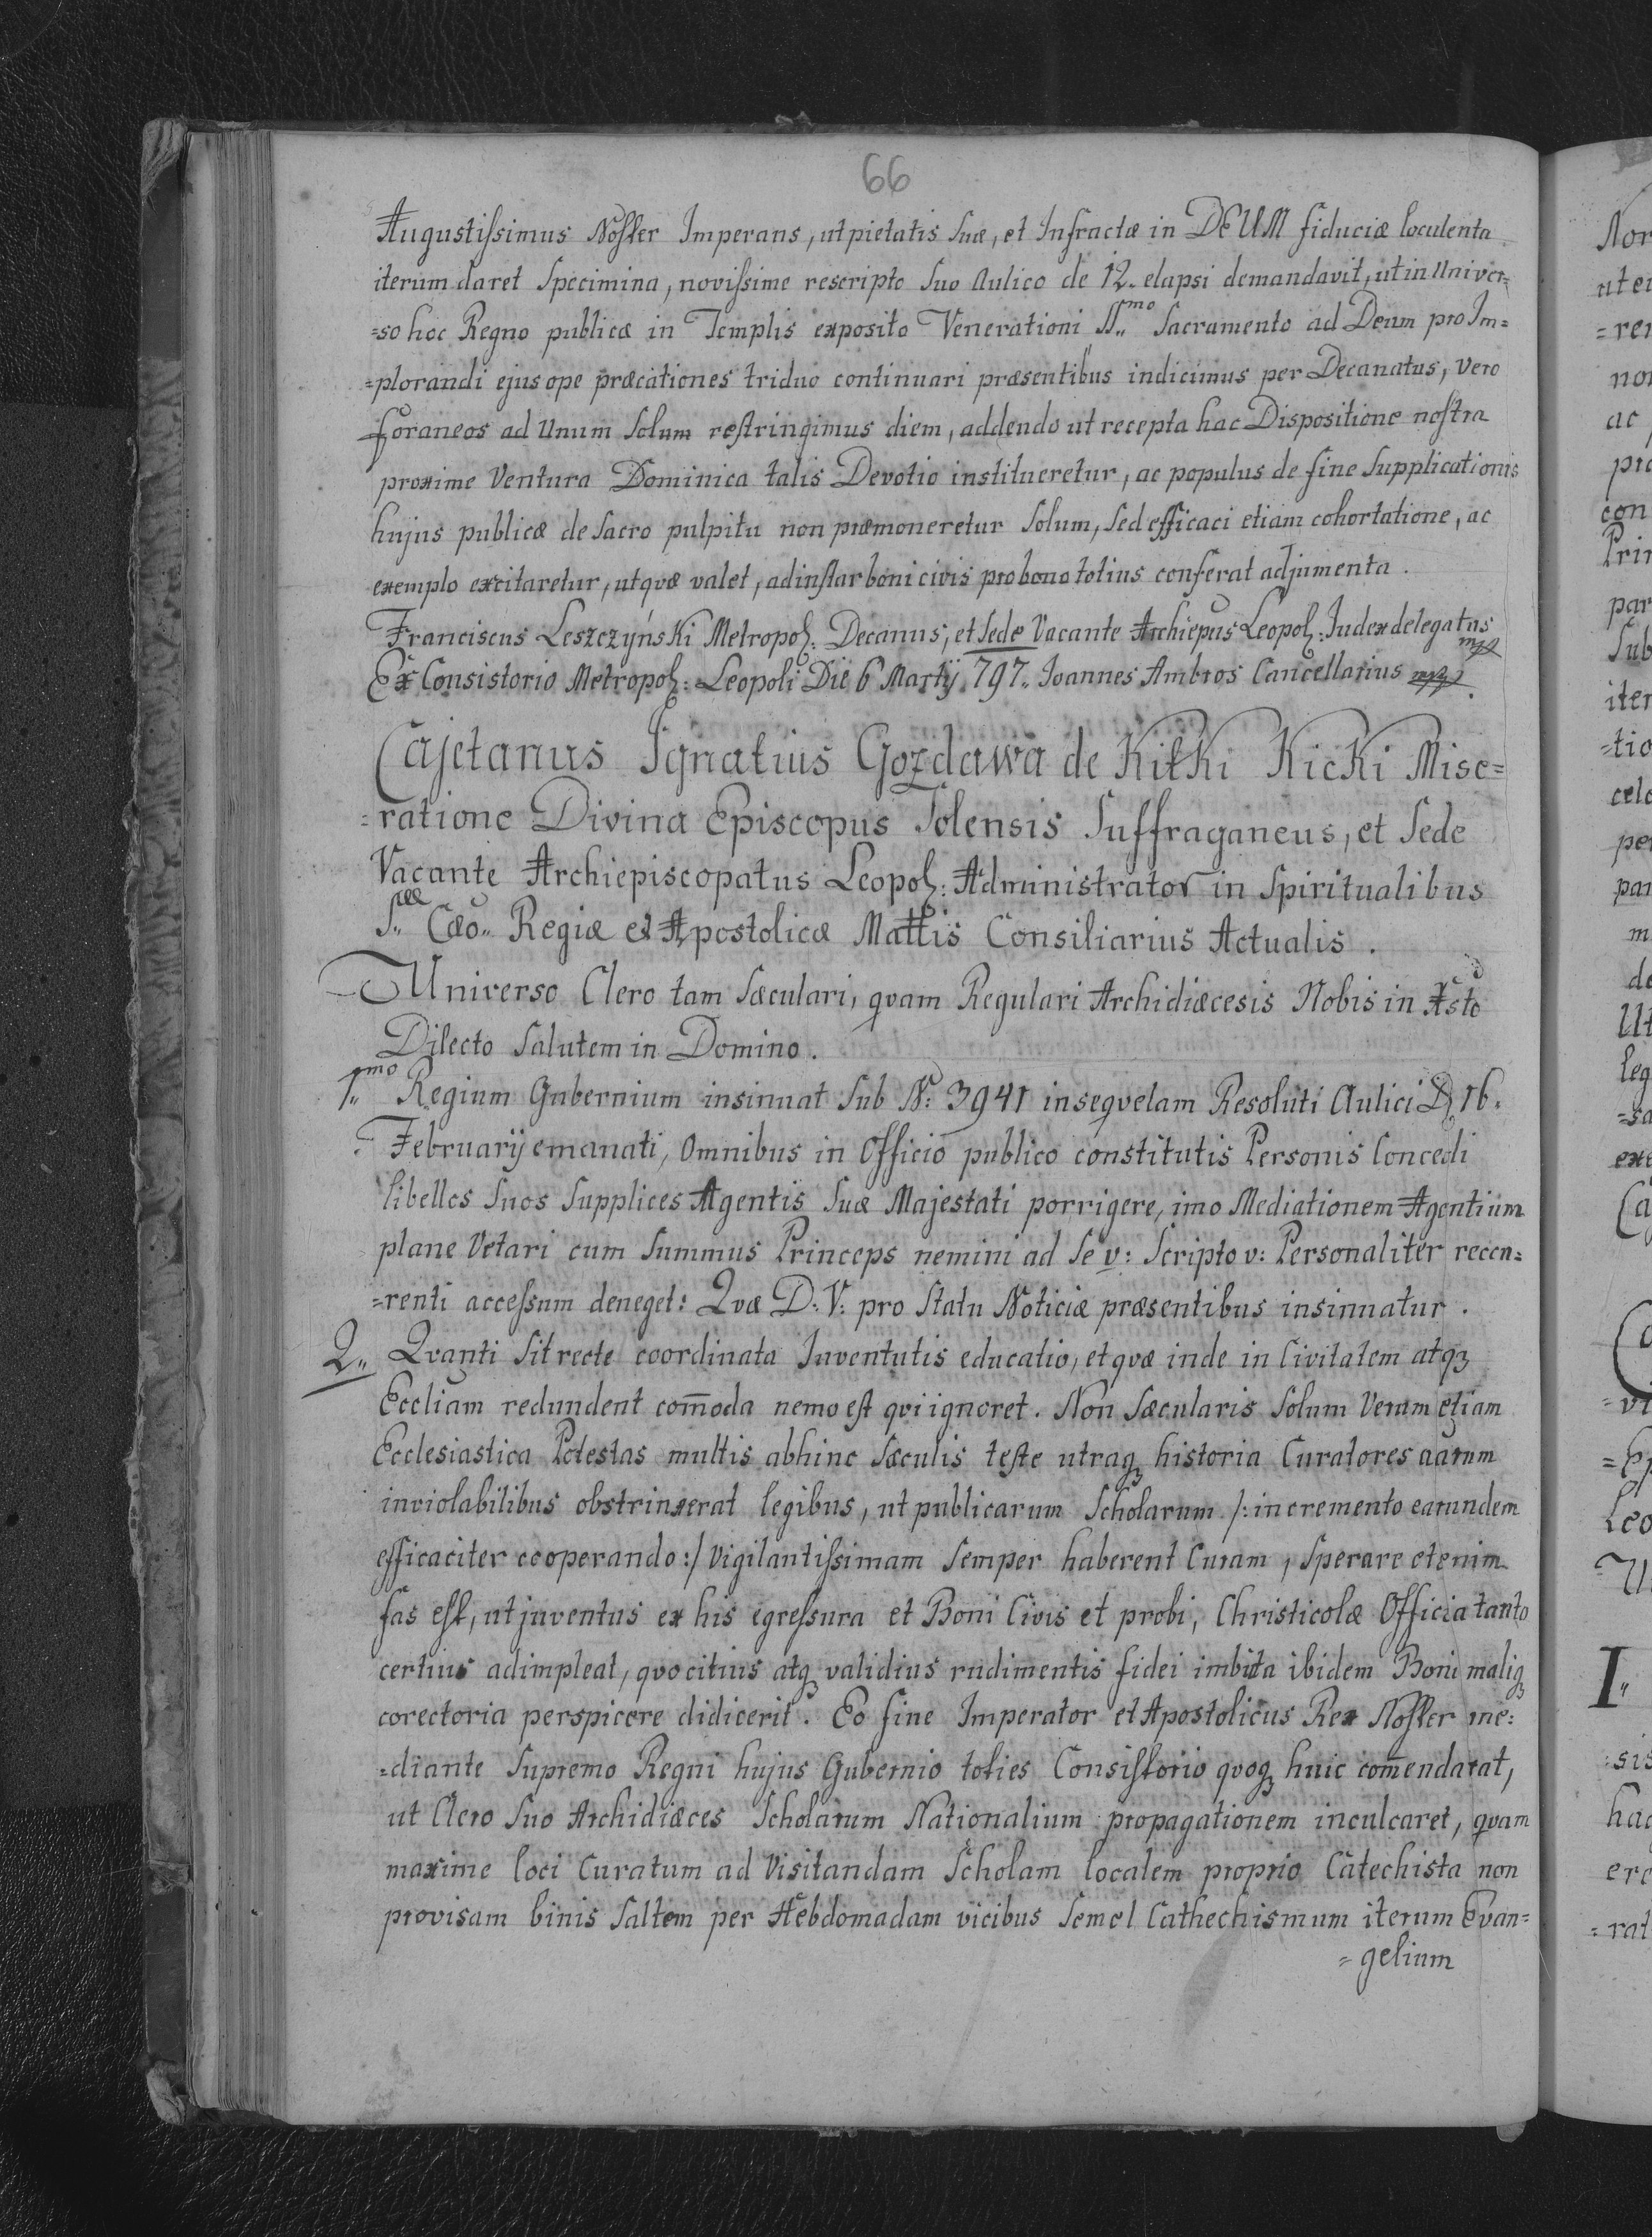 66
Augustissimus Noster Imperans, ut pietatis suæ, et Infractæ in DEUM fiduciæ loculenta
iterum daret Specimina, novissime rescripto Suo Aulico de 12. elapsi demandavit, ut in Univer=
=so hoc Regno publicæ in Templis exposito Venerationi SS„mo Sacramento ad Deum pro Im=
=plorandi ejus ope præcationes triduo continuari præsentibus indicimus per Decanatus, vero
foraneos ad Unum Solum restringimus diem, addendo ut recepta hac Dispositione nostra
proxime Ventura Dominica talis Devotio institueretur, ac populus de fine Supplicationis
hujus publicæ de Sacro pulpitu non præmoneretur Solum, Sed efficaci etiam cohortatione, ac
exemplo excitaretur, ut qvæ valet, ad instar boni civis pro bono totius conferat adjumenta.
Franciscus Leszczyński Metropol: Decanus, et Sede Vacante Archiepus Leopol: Judex delegatus mp
Ex Consistorio Metropol: Leopoli Die 6 Martij 797„ Joannes Ambros Cancellarius mp.
Cajetanus Ignatius Gozdawa de Kitki Kicki Mise=
=ratione Divina Episcopus Tolensis Suffraganeus, et Sede
Vacante Archiepiscopatus Leopol: Administrator in Spiritualibus
S„æ Cæo„ Regiæ et Apostolicæ Mattis Consiliarius Actualis.
Universo Clero tam Sæculari, qvam Regulari Archidiæcesis Nobis in Xsto
Dilecto Salutem in Domino.
1„mo Regium Gubernium insinuat Sub N: 3941 in seqvelam Resoluti Aulici D. 16.
Februarij emanati, Omnibus in Officio publico constitutis Personis Concedi
libellos Suos Supplices Agentis Suæ Majestati porrigere, imo Mediationem Agentium
plane Vetari cum Summus Princeps nemini ad Se v: Scripto v: Personaliter recen=
=renti accessum deneget: Qvæ D: V: pro Statu Noticiæ præsentibus insinuatur.
2„ Qvanti Sit recte coordinata Juventutis educatio, et qvæ inde in Civitatem atq3
Eccliam redundent com̄oda nemo est qvi ignoret. Non Sæcularis Solum Verum etiam
Ecclesiastica Potestas multis abhinc Sæculis teste utraq3 historia Curatores aarum
inviolabilibus obstrinxerat legibus, ut publicarum Scholarum /: incremento earundem
efficaciter cooperando :/ Vigilantissimam Semper haberent Curam, Sperare etenim
fas est, ut juventus ex his egressura et Boni Civis et probi, Christicolæ Officia tanto
certius adimpleat, qvo citius atq3 validius rudimentis fidei imbuta ibidem Boni maliq3
corectoria perspicere didicerit. Eo fine Imperator et Apostolicus Rex Noster me:
=diante Supremo Regni hujus Gubernio toties Consistorio qvoq3 huic com̄endarat,
ut Clero Suo Archidiæces Scholarum Nationalium propagationem inculcaret, qvam
maxime loci Curatum ad Visitandam Scholam localem proprio Catechista non
provisam binis Saltem per Hebdomadam vicibus Semel Cathechismum iterum Evan=
=gelium